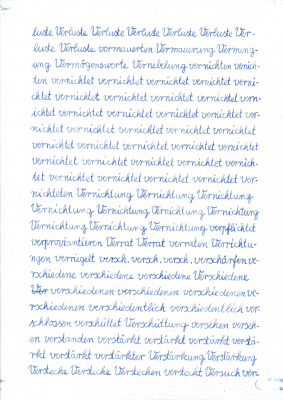 luste Verluste Verluste Verluste Verluste Verluste Ver-
luste Verluste vermauerten Vermauerung Vermeng-
ung Vermögenswerte Vernebelung vernichten vernich-
ten vernichtet vernichtet vernichtet vernichtet verni-
chtet vernichtet vernichtet vernichtet vernichtet vern-
ichtet vernichtet vernichtet vernichtet vernichtet ver-
nichtet vernichtet vernichtet vernichtet vernichtet
vernichtet vernichtet vernichtet vernichtet vernichtet
vernichtet vernichtet vernichtet vernichtet vernich-
tet vernichtet vernichtet vernichtet vernichtet ver-
nichteten Vernichtung Vernichtung Vernichtung
Vernichtung Vernichtung Vernichtung Vernichtung
Vernichtung Vernichtung Vernichtung verpflichtet
verproviantieren Verrat Verrat verraten Verrichtu-
ngen verriegelt versch. versch. versch. verschärfen ve-
rschiedene verschiedene verschiedene Verschiedene
verschiedenen verschiedenen verschiedenen ve-
rschiedenen verschiedentlich verschiedentlich ver-
schlossen verschüttet Verschüttung versehen verseh-
en verstanden verstärkt verstärkt verstärkt verstä-
rkt verstärkt verstärkter Verstärkung Verstärkung
Verstecke Verstecke Verstecken versteckt Versuch ver-